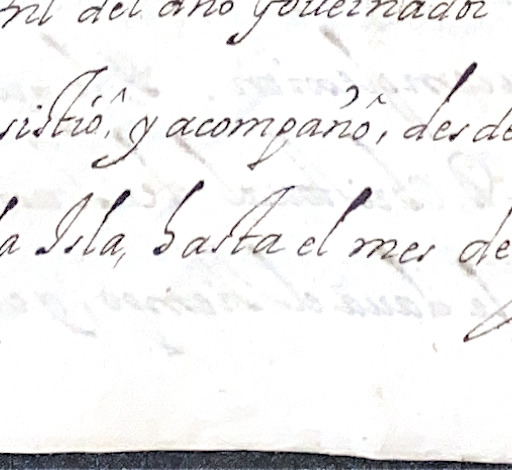 del dho gouernador
sistió, y acompañó, desde
la Isla, hasta el mes de